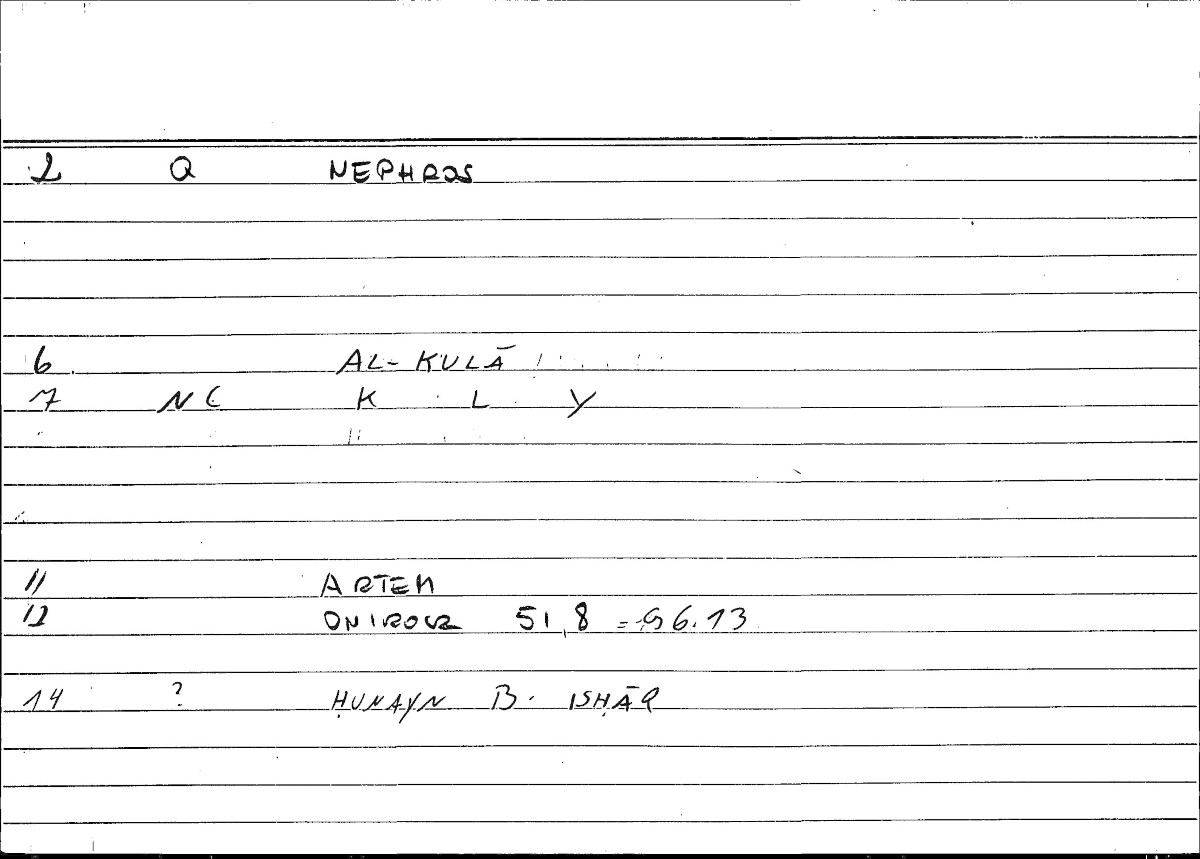 2 Q NEPHROS
6 AL-KULĀ
7 NC K L Y
11 ARTEM
12 ONIROCR 51,8 = 96.13
14 ? ḤUNAYN B. ISḤĀQ